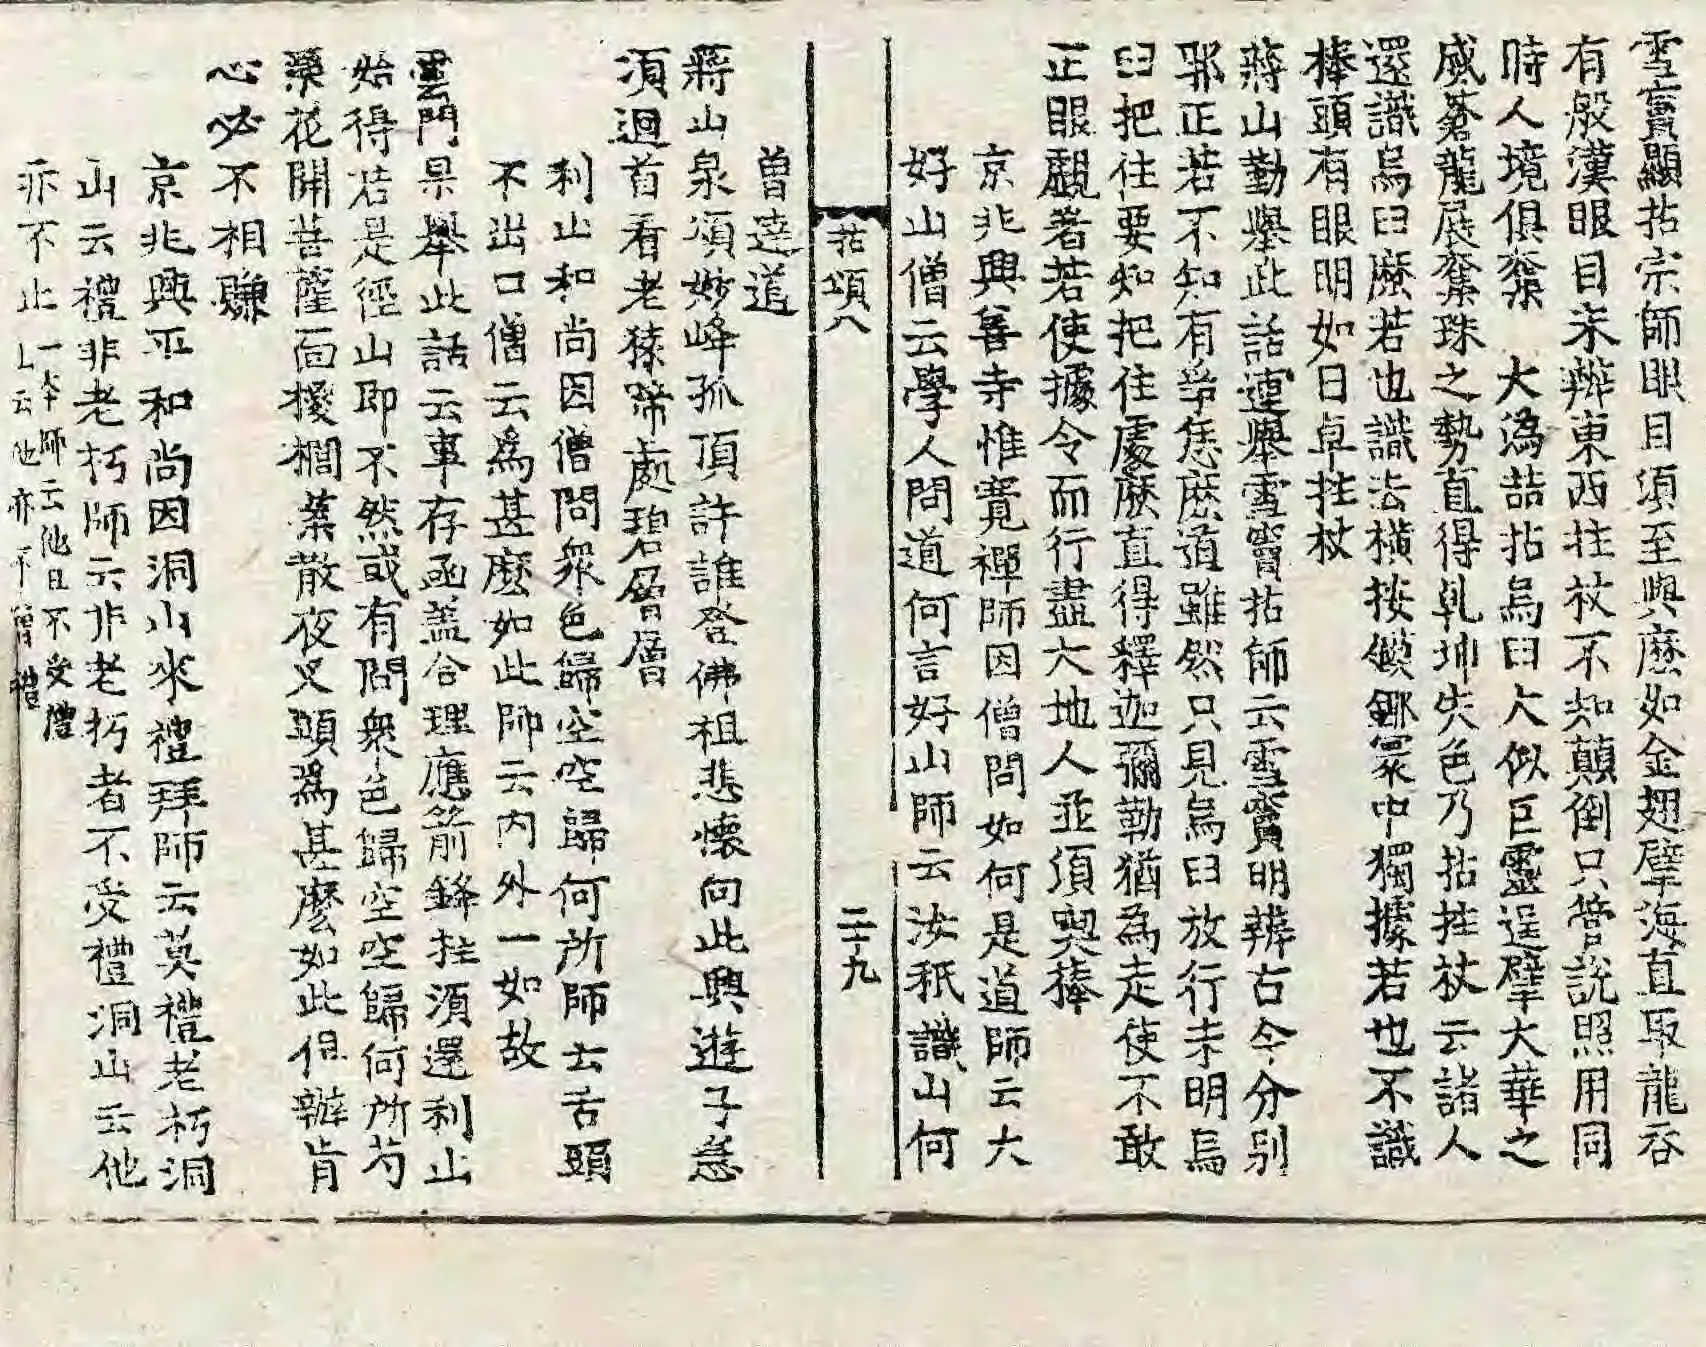 雪竇顯拈宗師眼目須至與麽如金翅擘海直取龍吞
有般漢眼目未辨東西拄杖不知顛倒只管說照用同
時人境俱奪　大溈喆拈烏臼大似巨靈逞擘大華之
威蒼龍展奪珠之勢直得乹坤失色乃拈拄杖云諸人
還識烏臼麽若也識去橫按鏌鎁寰中獨據若也不識
棒頭有眼明如日卓拄杖
蔣山勤舉此話連舉雪竇拈師云雪竇明辨古今分別
邪正若不知有爭恁麽道雖然只見烏臼放行未明烏
臼把住要知把住處麽直得釋迦彌勒猶為走使不敢
正眼覷著若使據令而行盡大地人並須喫棒
京兆興善寺惟寛禪師因僧問如何是道師云大
好山僧云學人問道何言好山師云汝秖識山何
拈頌八　二十九
曽達道
蔣山泉頌妙峰孤頂許誰登佛祖悲懷向此興遊子急
須迴首看老猿啼處碧層層
利山和尚因僧問衆色歸空空歸何所師云舌頭
不出口僧云爲甚麽如此師云内外一如故
雲門杲舉此話云事存函盖合理應箭鋒拄須還利山
始得若是徑山即不然或有問衆色歸空空歸何所芍
藥花開菩薩面椶櫚葉散夜叉頭爲甚麽如此但辦肯
心必不相賺
京兆興平和尚因洞山來禮拜師云莫禮老朽洞
山云禮非老朽師云非老朽者不受禮洞山云他
亦不止一本師云他且不受禮
山云他亦不曾禮